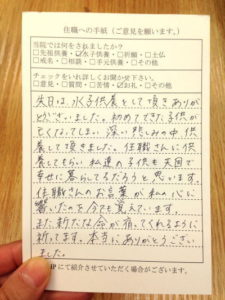 住職への手紙（ご意見を願います。）
当院では何をされましたか？
□先祖供養・☑水子供養・□祈願・□土仏
□戒名・□相談・□手元供養・□その他
チェックをいれ詳しくお聞かせ下さい。
□意見・□質問・□苦情・☑お礼・□その他
先日は、水子供養をして頂きありが
とうございました。初めてできた子供が
亡くなってしまい深い悲しみの中供
養して頂きました。住職さんに供
養してもらい私達の子供も天国で
幸せに暮らしてるだろうと思います。
住職さんのお言葉が私の心に
響いたのを今でも覚えています。
また新たな命が宿ってくれるように
祈ってます。本当にありがとうござい
ました。
HPにて紹介させていただく場合がございます。